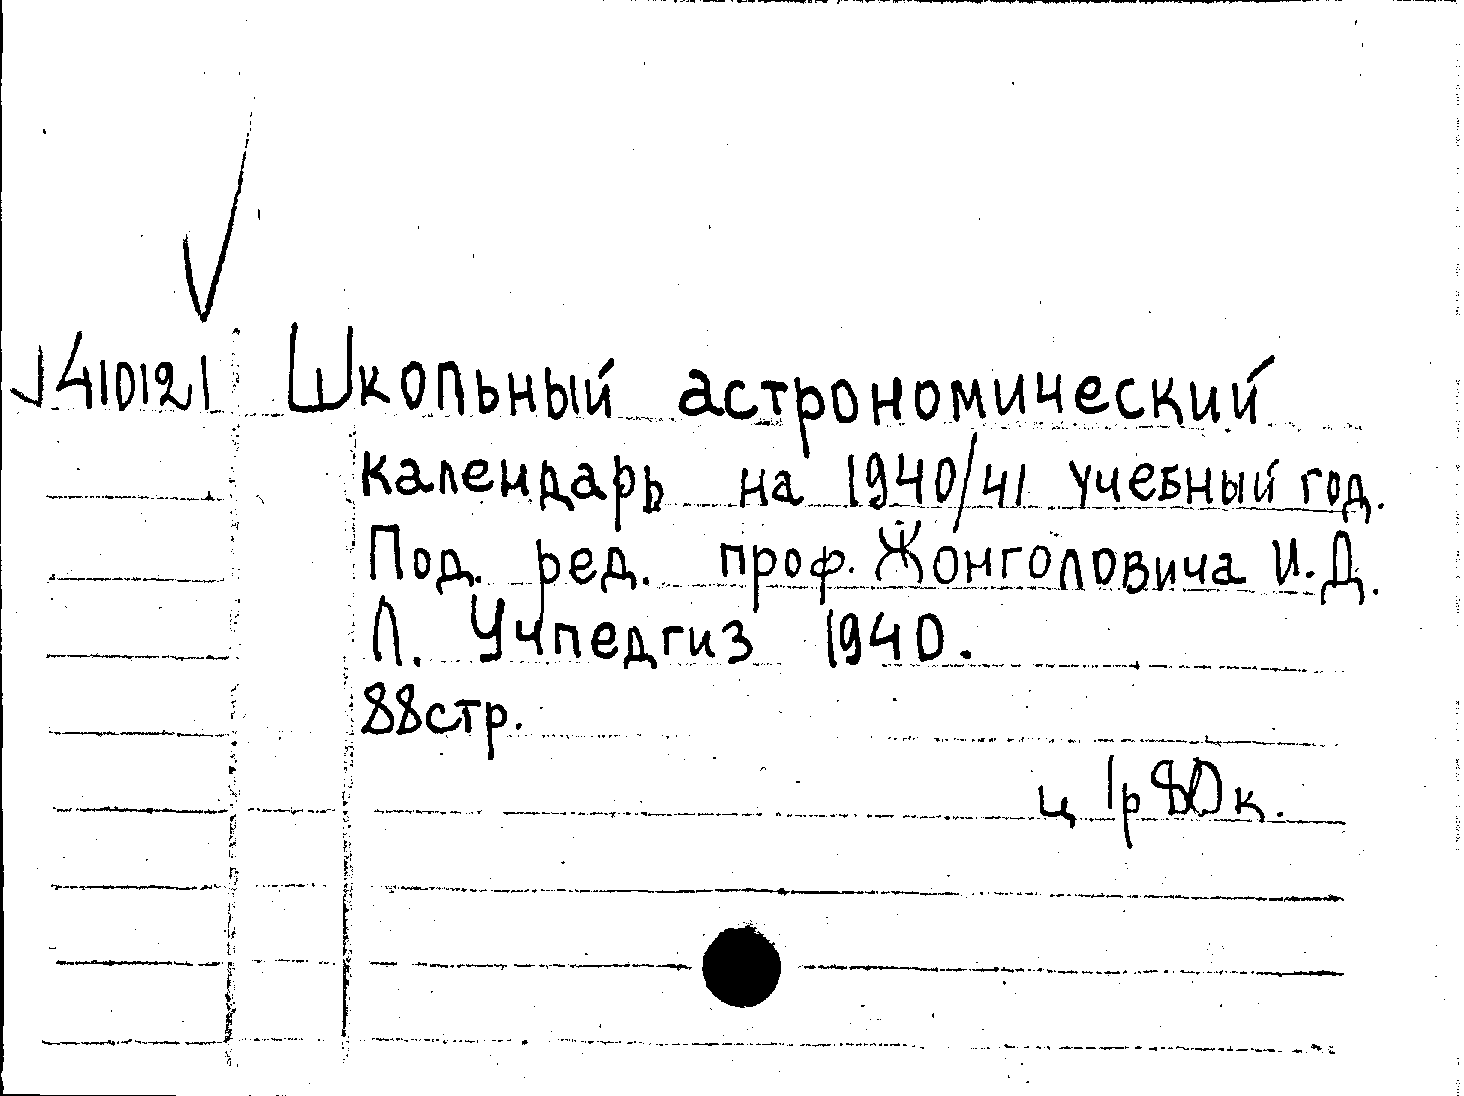 J410121 Школьный астрономический
календарь на 1940/41 учебный год.
Под. ред. проф. Жонголовича И.Д.
Л. Учпедгиз 1940.
88стр.
ц 1р80к.